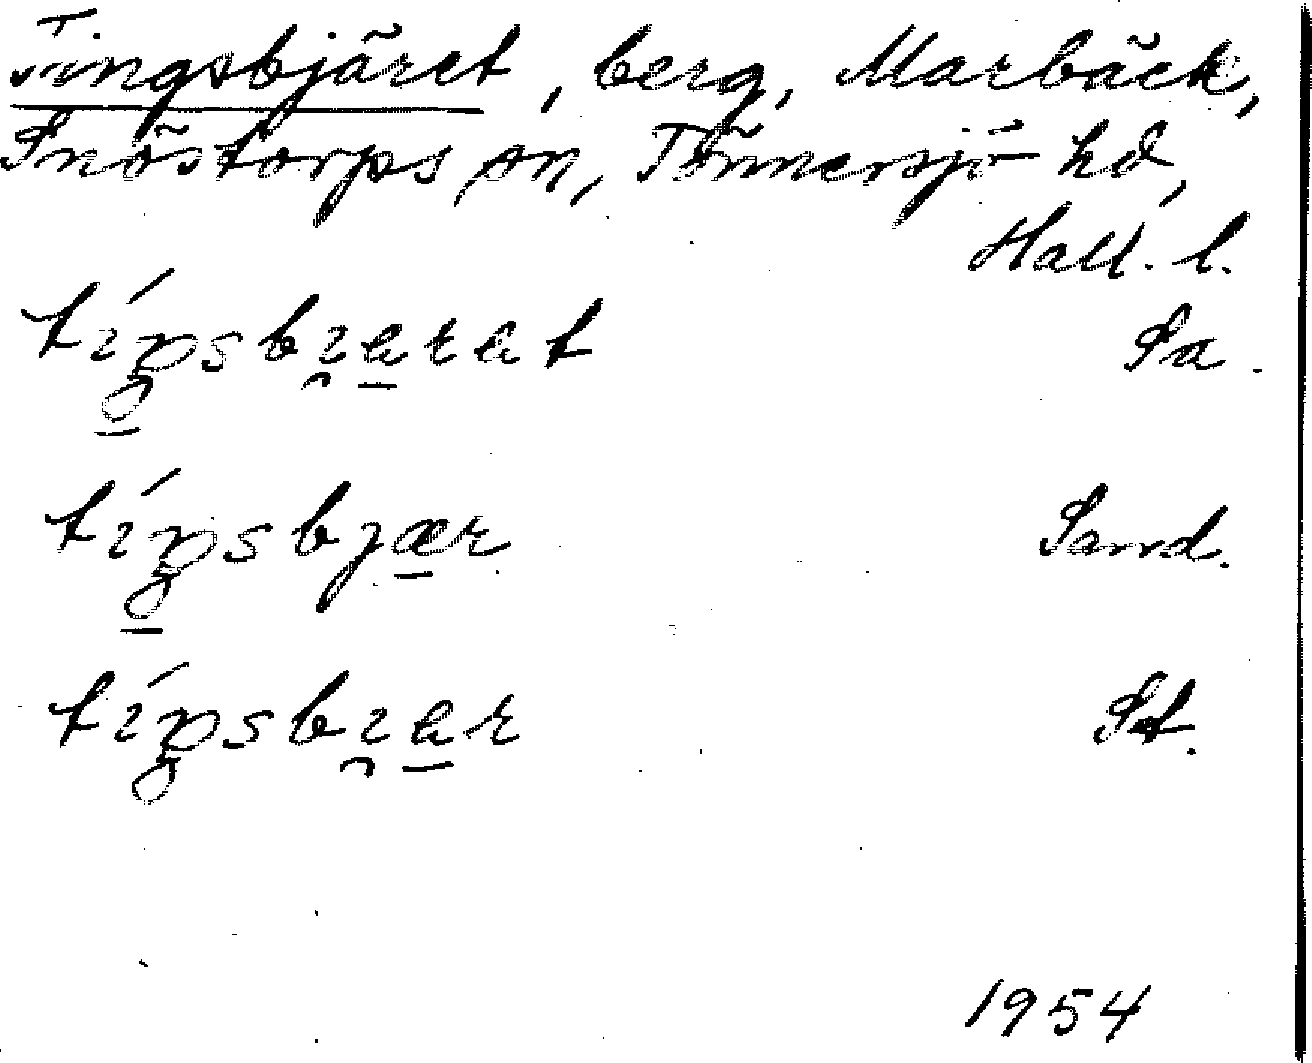 Tingsbjäret, berg, Marbäck,
Snöstorps sn, Tönnersjö hd,
Hall. l.
tíŋsbɪ̯a̱rat Sa.
tíŋsbjæ̱r Sand.
tíŋsbɪ̯a̱r St.
1954